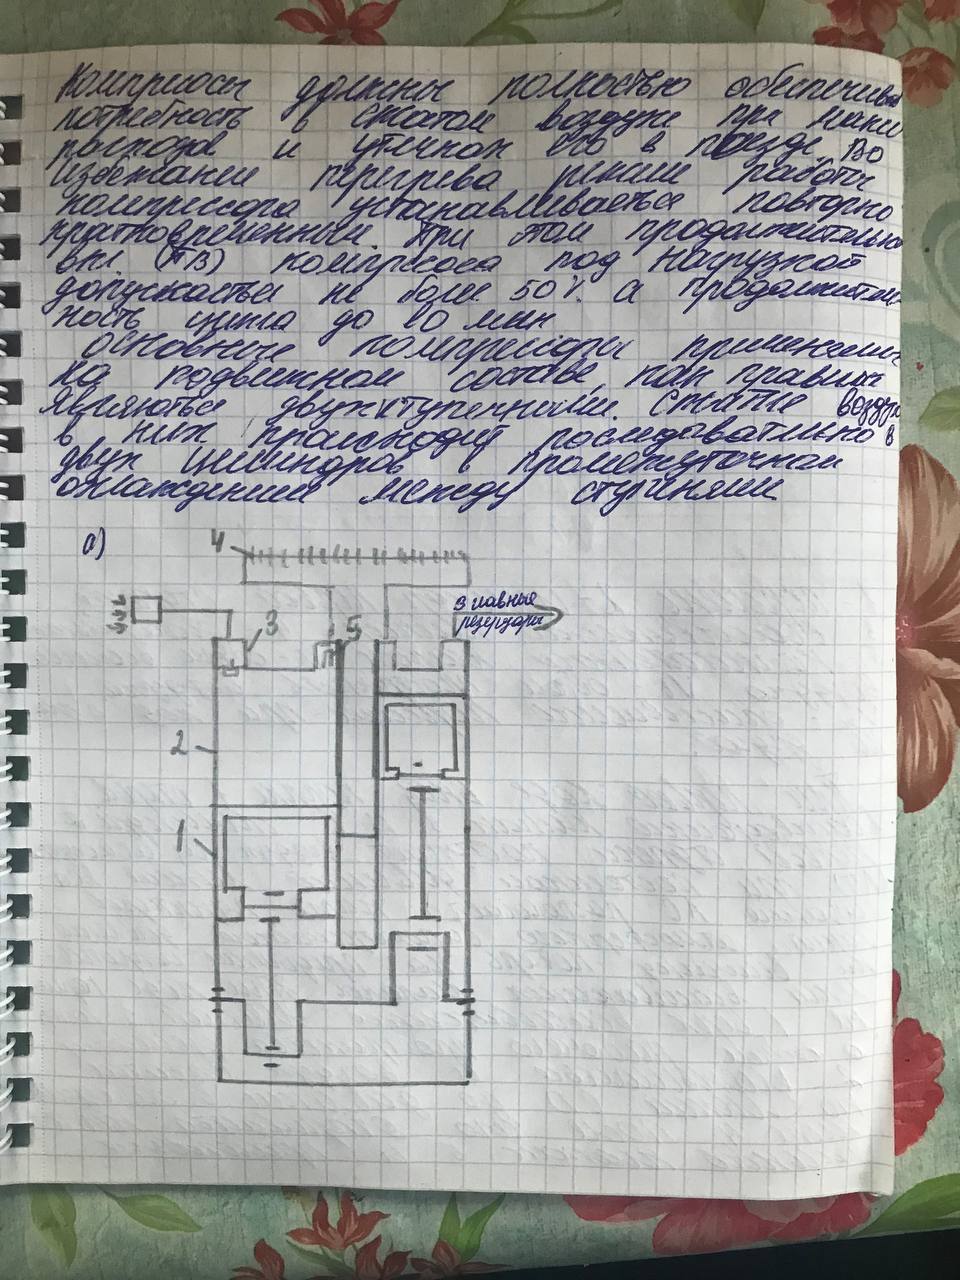 Компрессы должны полностью обеспечива
потребность в сжатом воздухе при макс
расходов и утечках его в поезде. Во
избежание перегрева режим работы
компрессора устанавливаеться повторно
кратковременный. При этом продолжительно
вкл. (ПВ) компресоса под нагрузкой
допускаеться не боле 50% а продолжител
ность цикла до 10 мин
основные компрессоры применяемы
на подвижном составе, как правило
являються двухступенчими. Сжатие воздуха
в них происходит последавательно в
двух цилиндров с промежуточном
охлаждением между ступенями
а)
4
в главные
резервуары
3
5
2
1